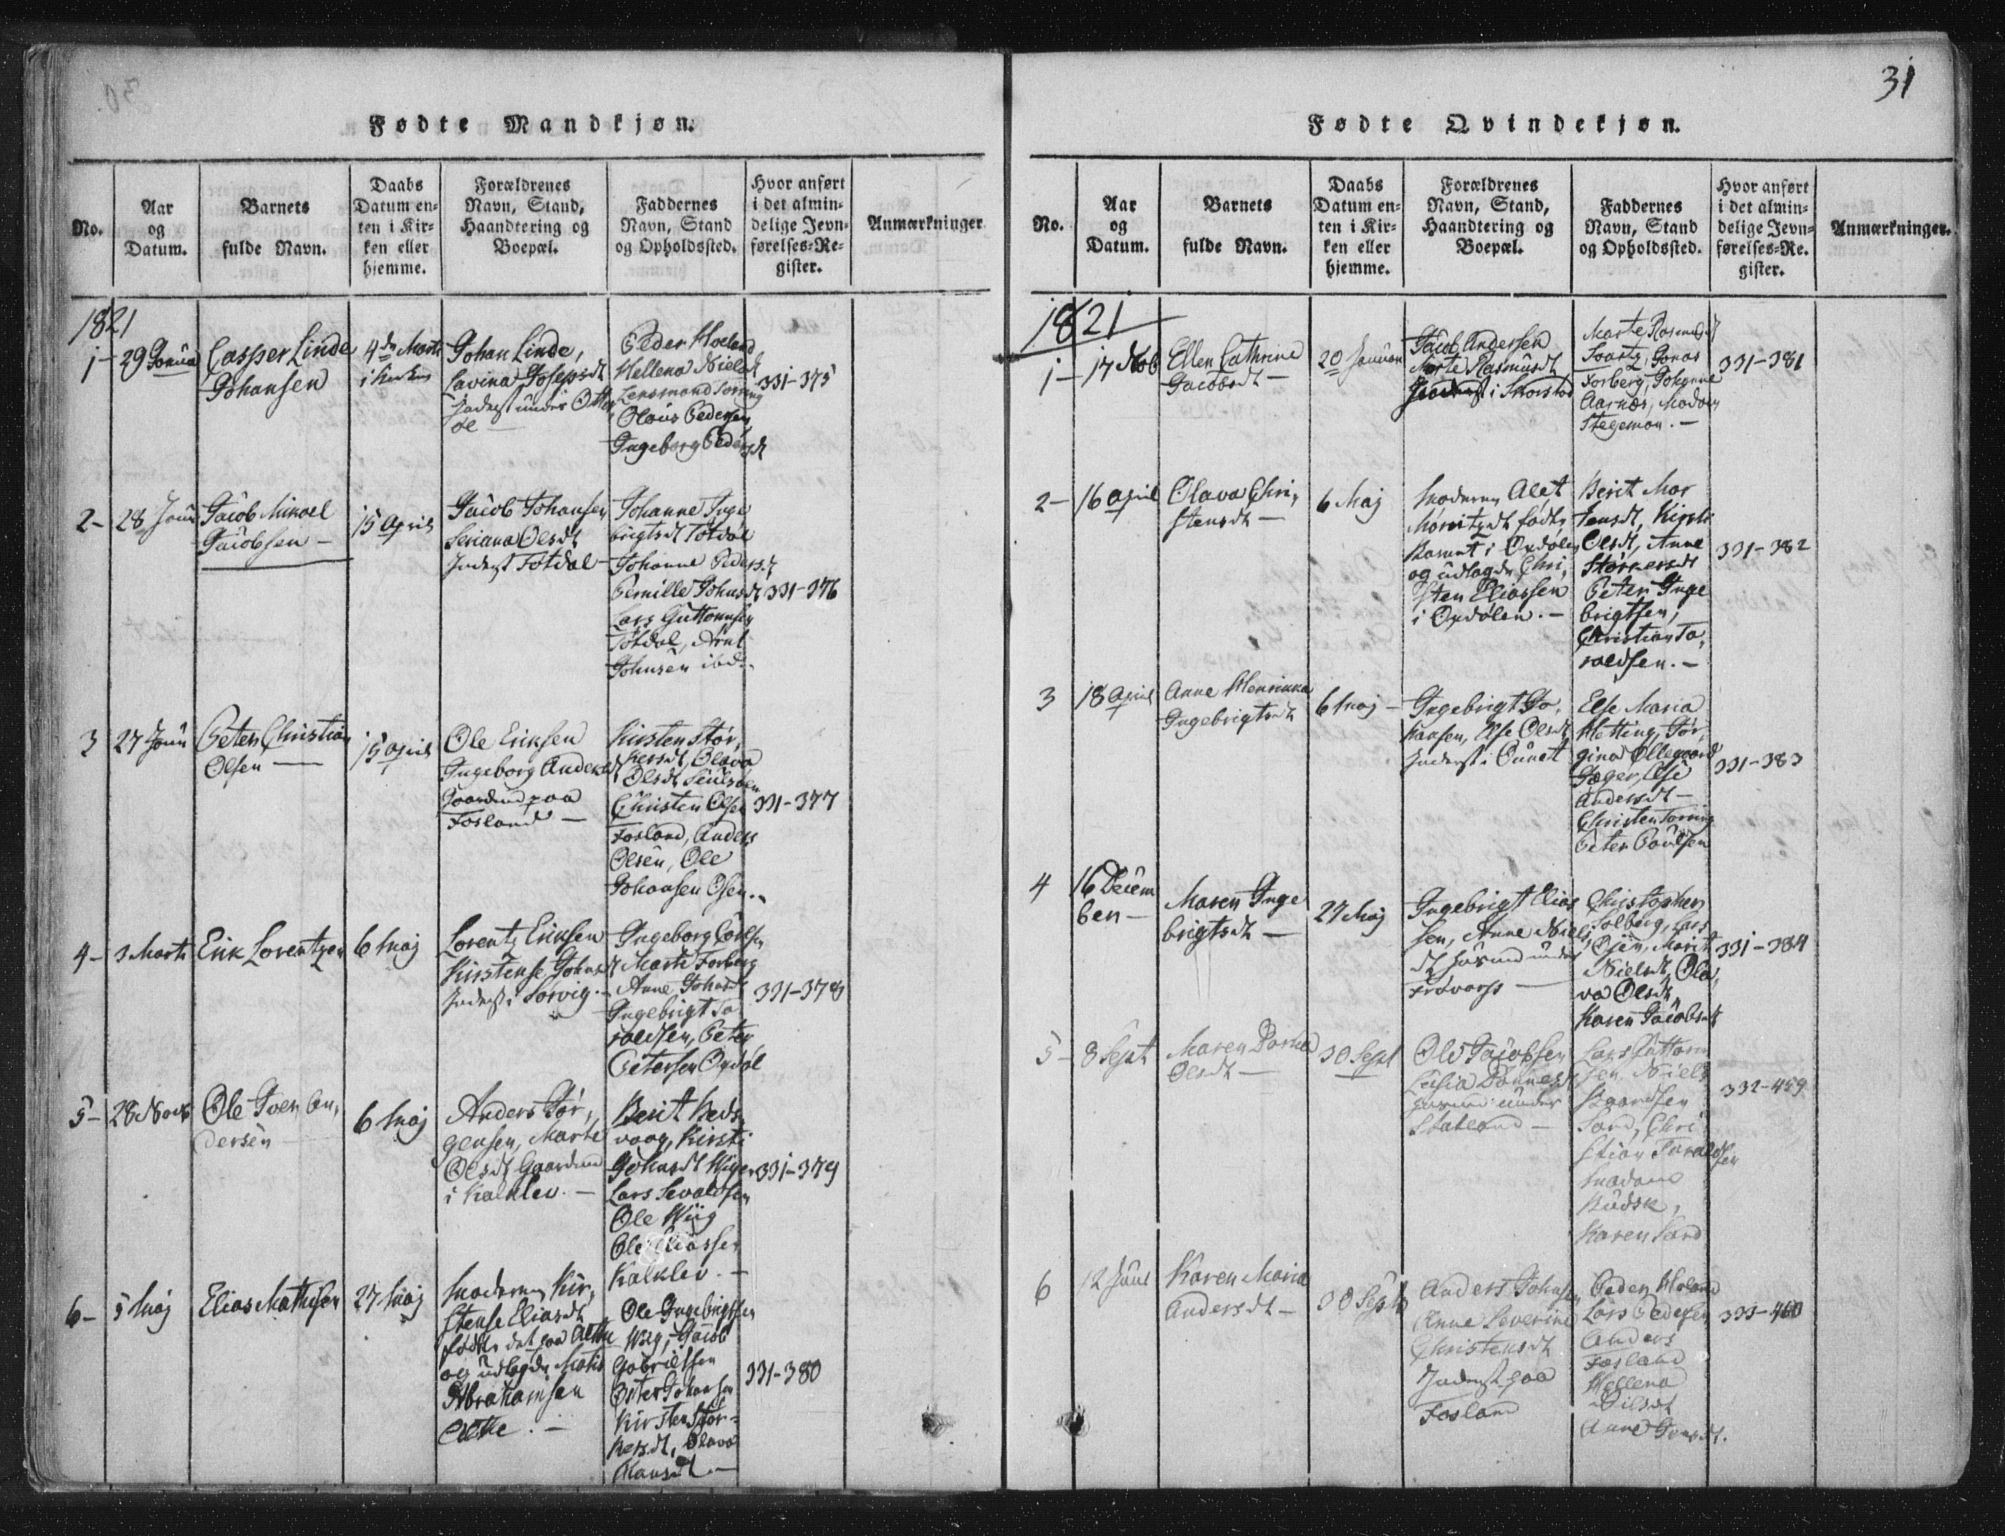 31
Fødte Mandkjøn.
No.
Aar
og
Datum.
Barnets
fulde Navn.
Daabs
Datum en-
ten i Kir-
ken eller
hjemme.
Forældrenes
Navn, Stand,
Haandtering og
Boepæl.
Faddernes
Navn, Stand
og Opholdssted.
Hvor anført
i det almin-
delige Jevn-
førelses-Re-
gister.
Anmærkninger
1821
1 -
29 Janua
Casper Linde
Johansen
4de Marts
i Kirken
Johan Linde,
Lavina Josepsdt
Inderst under Otter
øe
Peder Hoeland
Hellena Nielsdt
Lensmand Torring
Olaus Pedersen
Ingeborg Pedersdt
331-375
2 -
28 Janu
Jacob Mikael
Jacobsen -
15 April
Jacob Johansen
Seriana Olsdt
Inderst Totdal -
Johanne Inge
brigtsdt Totdal
Johanne Pedersd
Pernille Johnsdt
Lars Guttormsen
Totdal, Arnt
Johnsen ibd.
331-376
3
27 Janu
Peter Christian
Olsen -
15 April
Ole Eriksen
Ingeborg Andersdt
Gaardmd paa
Fosland -
Kirsten Stør,
kersdt, Olava
Olsdt
Christen Olsen
Fosland, Anders
Olsen, Ole
Johansen Osen.
331-377
4 -
3 Marts
Erik Lorentzen
6 Maj
Lorentz Eriksen
Kirstense Johnsdt
Inderst i Sørvig -
Ingeborg
Marte Forberg
Anne Johnsdt
Ingebrigt To
roldsen, Peter
Petersen Opdøl
331-378
5 -
28 Novb
Ole Iver An,
dersen
6 Maj
Anders Jør,
gensen, Marte
Olsdt Gaardmd
i Kalklev. -
Berit Beds
vaag, Kirsti
Johnsdt Wiger
Lars Sevaldsen
Ole Wiig
Ole Eliassen
Kalklev. -
331-379
6 -
5 Maj
Elias Mathisen
27 Maj
Moderen Kir,
stense Eliasdt
født det paa Alte
og udlagde Matis
Abrahamsen
Alte. -
Ole Ingebrigtsen
Wiig, Jacob
Gabrielsen
Peter Johansen
Kirsten Stør-
kersdt, Olava
Hansdt -
331-380
Fødte Qvindekjøn.
No.
Aar
og
Datum.
Barnets
fulde Navn.
Daabs
Datum en-
ten i Kir-
ken eller
hjemme.
Forældrenes
Navn, Stand,
Haandtering og
Boepæl.
Faddernes
Navn, Stand
og Opholdssted.
Hvor anført
i det almin-
delige Jevn-
førelses-Re-
gister.
Anmærkninger.
1821
1 -
17 Nob
Ellen Cathrine
Jacobsdt -
20 Januar
Jacob Andersen
Marte Rasmusdt
i Skorstad
Marte Rasmusdt
Jonas
Forberg, Johanne
Aarnæs, Madam
Stegeman. -
331-381
2 -
16 April
Olava Chri,
stensdt -
6 Maj
Moderen Alet
Moritzdt født
Barnet i Opdølen
og udlagde Chri,
sten Eliassen
i Opdølen. -
Berit Mor
tensdt, Kirsti
Olsdt, Anne
Størkersdt
Peter Inge
brigtsen,
Christian To,
roldsen. -
331-382
3
18 April
Anne Henrikka
Ingebrigtsdt
6 Maj -
Ingebrigt Jo,
hansen, Else Olsdt
Inderst i Duunet
Else Maria
Hetting, Jør,
gina Ollegaard
Jæger, Else
Andersdt -
Christen Torring
Peter Poulsen
331-383
4
16 Decem
ber -
Maren Inge
brigtsdt -
27 Maj
Ingebrigt Elias
sen, Anne Niels,
dt Huusmd under
Fravarp -
Christopher
Solberg, Lars
Marit
Nielsdt, Ola,
va Olsdt
Karen Jacobsdt
331-384
5 -
8 Sept
Maren
Olsdt -
30 Sept
Ole Jacobsen
Lusia Tønnesdt
Huusmd under
Statland -
Lars Guttorm
sen, Niels
Baardsen
Sard, Chri
stian Toraldsen
Madam
Budsk,
Karen Sard
332-459
6
12 Juni
Karen Maria
Andersdt -
30 Sept
Anders Johnsen
Anne Severine
Christensdt
Inderst paa
Fosland
Peder Hoeland
Lars Pedersen
Anders
Fosland
Hellena
Nilsdt
Anne Jensdt.
333-460